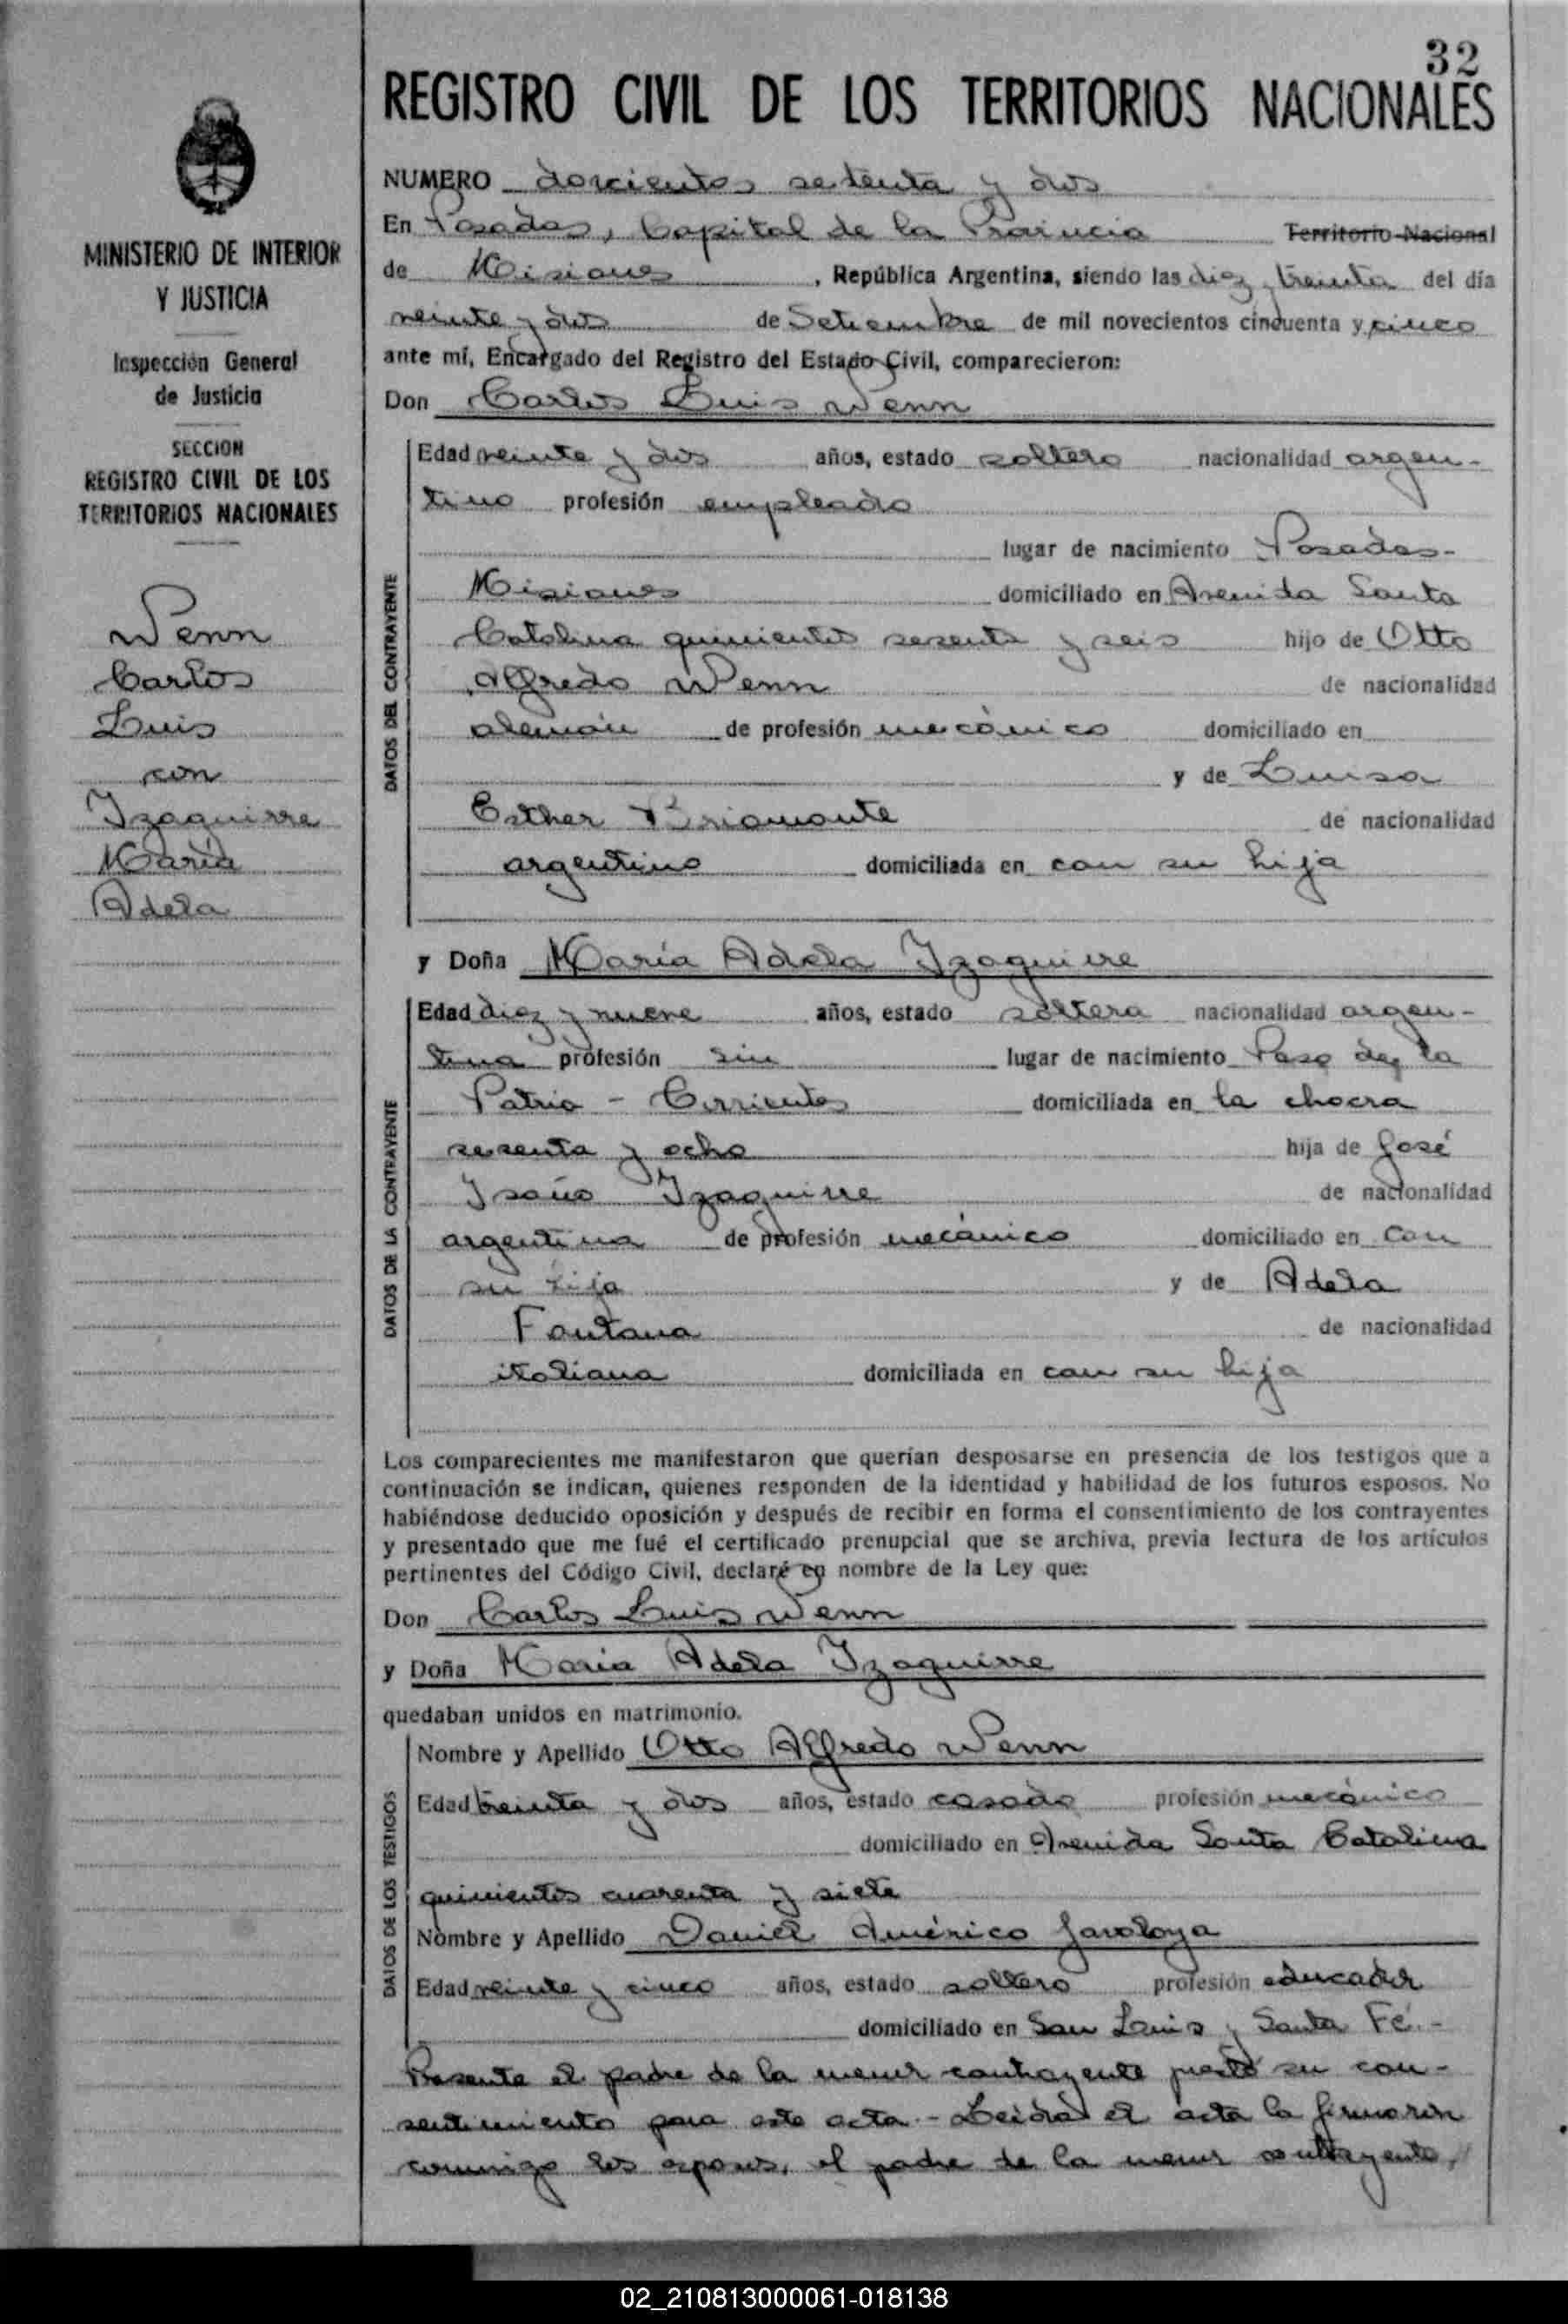 32
REGISTRO CIVIL DE LOS TERRITORIOS NACIONALES
MINISTERIO DE INTERIOR
Y JUSTICIA
Inspección General
de Justicia
SECCION
REGISTRO CIVIL DE LOS
TERRITORIOS NACIONALES
Wenn
Carlos
Luis
con
Yzaguirre
María
Adela
NUMERO doscientos setenta y dos
En Posadas, Capital de la Provincia Territorio Nacional
de Misiones, República Argentina, siendo las diez y treinta del día
veinte y dos de Setiembre de mil novecientos cincuenta y cinco
ante mí, Encargado del Registro del Estado Civil, comparecieron:
Don Carlos Luis Wenn
DATOS DEL CONTRAYENTE
Edad veinte y dos años, estado soltero nacionalidad argen-
tino profesión empleado
lugar de nacimiento Posadas-
Misiones domiciliado en Avenida Santa
Catalina quinientos sesenta y seis hijo de Otto
Alfredo Wenn de nacionalidad
alemán de profesión mecánico domiciliado en
y de Luisa
Esther Briamonte de nacionalidad
argentino domiciliada en con su hija
y Doña María Adela Yzaguirre
DATOS DE LA CONTRAYENTE
Edad diez y nueve años, estado soltera nacionalidad argen-
tina profesión sin lugar de nacimiento Paso de la
Patria - Corrientes domiciliada en la chacra
sesenta y ocho hija de José
Yzaguirre de nacionalidad
argentina de profesión mecánico domiciliado en con
su hija y de Adela
Fontana de nacionalidad
italiana domiciliada en con su hija
Los comparecientes me manifestaron que querían desposarse en presencia de los testigos que a
continuación se indican, quienes responden de la identidad y habilidad de los futuros esposos. No
habiéndose deducido oposición y después de recibir en forma el consentimiento de los contrayentes
y presentado que me fué el certificado prenupcial que se archiva, previa lectura de los artículos
pertinentes del Código Civil, declaré en nombre de la Ley que:
Don Carlos Luis Wenn
y Doña María Adela Yzaguirre
quedaban unidos en matrimonio.
DATOS DE LOS TESTIGOS
Nombre y Apellido Otto Alfredo Wenn
Edad treinta y dos años, estado casado profesión mecánico
domiciliado en Avenida Santa Catalina
quinientos cuarenta y siete
Nombre y Apellido Daniel Américo
Edad veinte y cinco años, estado soltero profesión educador
domiciliado en San Luis y Santa Fé.-
Presente el padre de la menor contrayente prestó su con-
sentimiento para este acta.- Leída el acta la firmaron
conmigo los esposos, el padre de la menor contrayente,
02_210813000061-018138